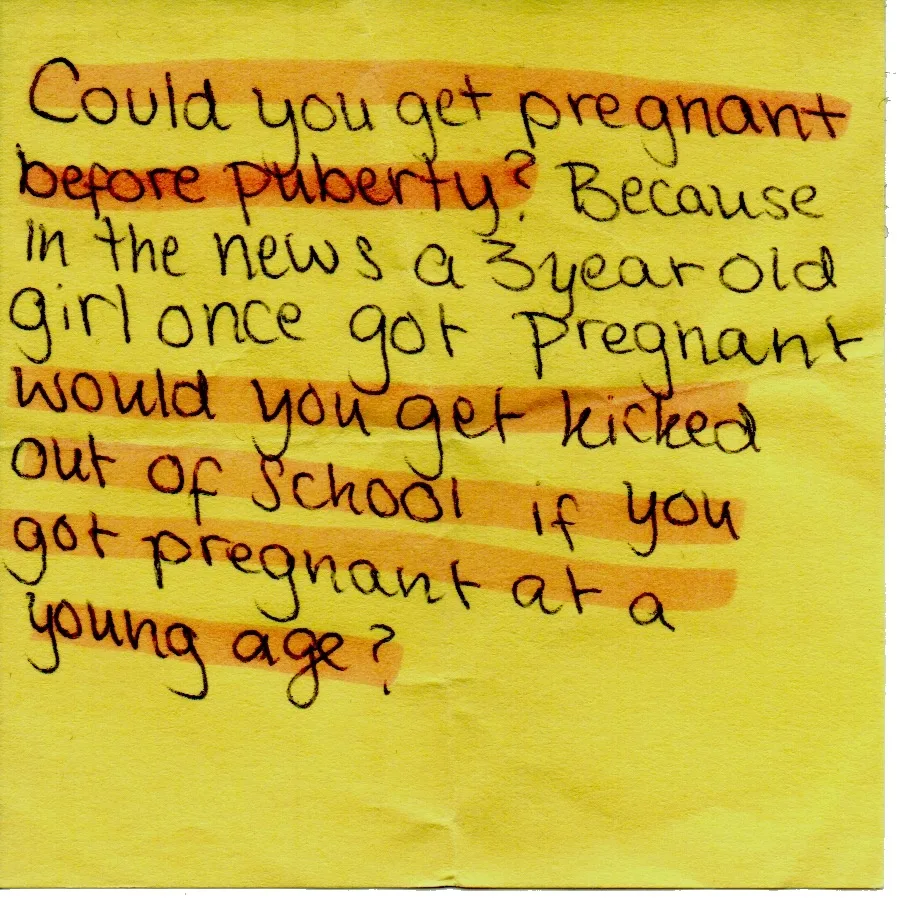 Could you get pregnant
before puberty? Because
in the news a 3 year old
girl once got pregnant
would you get kicked
out of school if you
got pregnant at a
young age?